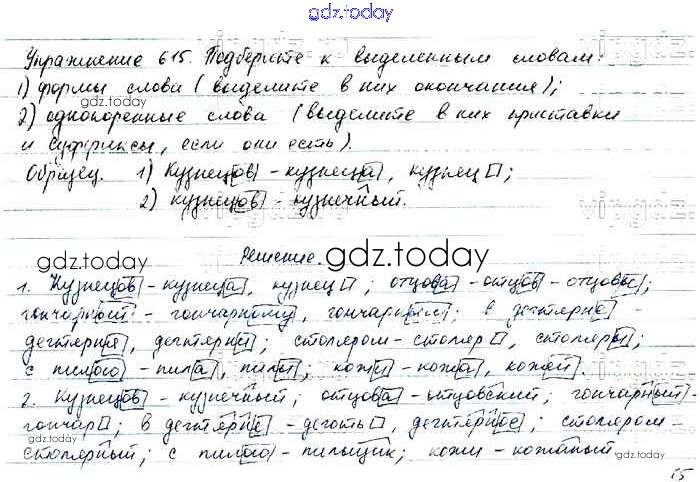 gdz.today
Упражнение 615. Подберите к выделенным словам:
1) формы слова (выделите в них окончания);
gdz.today
2) однокоренные слова (выделите в них приставки
и суффиксы, если они есть).
gdz.today
Образец. 1) Кузнецов - кузнеца, кузнец ;
2) кузнецов - кузнечный.
Решение. gdz.today
1. Кузнецов - кузнеца, кузнец ; отцова - отцов - отцовы;
гончарный - гончарному, гончарными; в дегтярне -
дегтярня, дегтярни; столяром - столяр , столяры;
с пилою - пила, пилы; кожи - кожа, кожей.
gdz.today
2. Кузнецов - кузнечный; отцова - отцовский; гончарный -
гончар ; в дегтярне - деготь , дегтярное; столяром -
gdz.today
столярный; с пилою - пильщик; кожи - кожаный
gdz.today
15